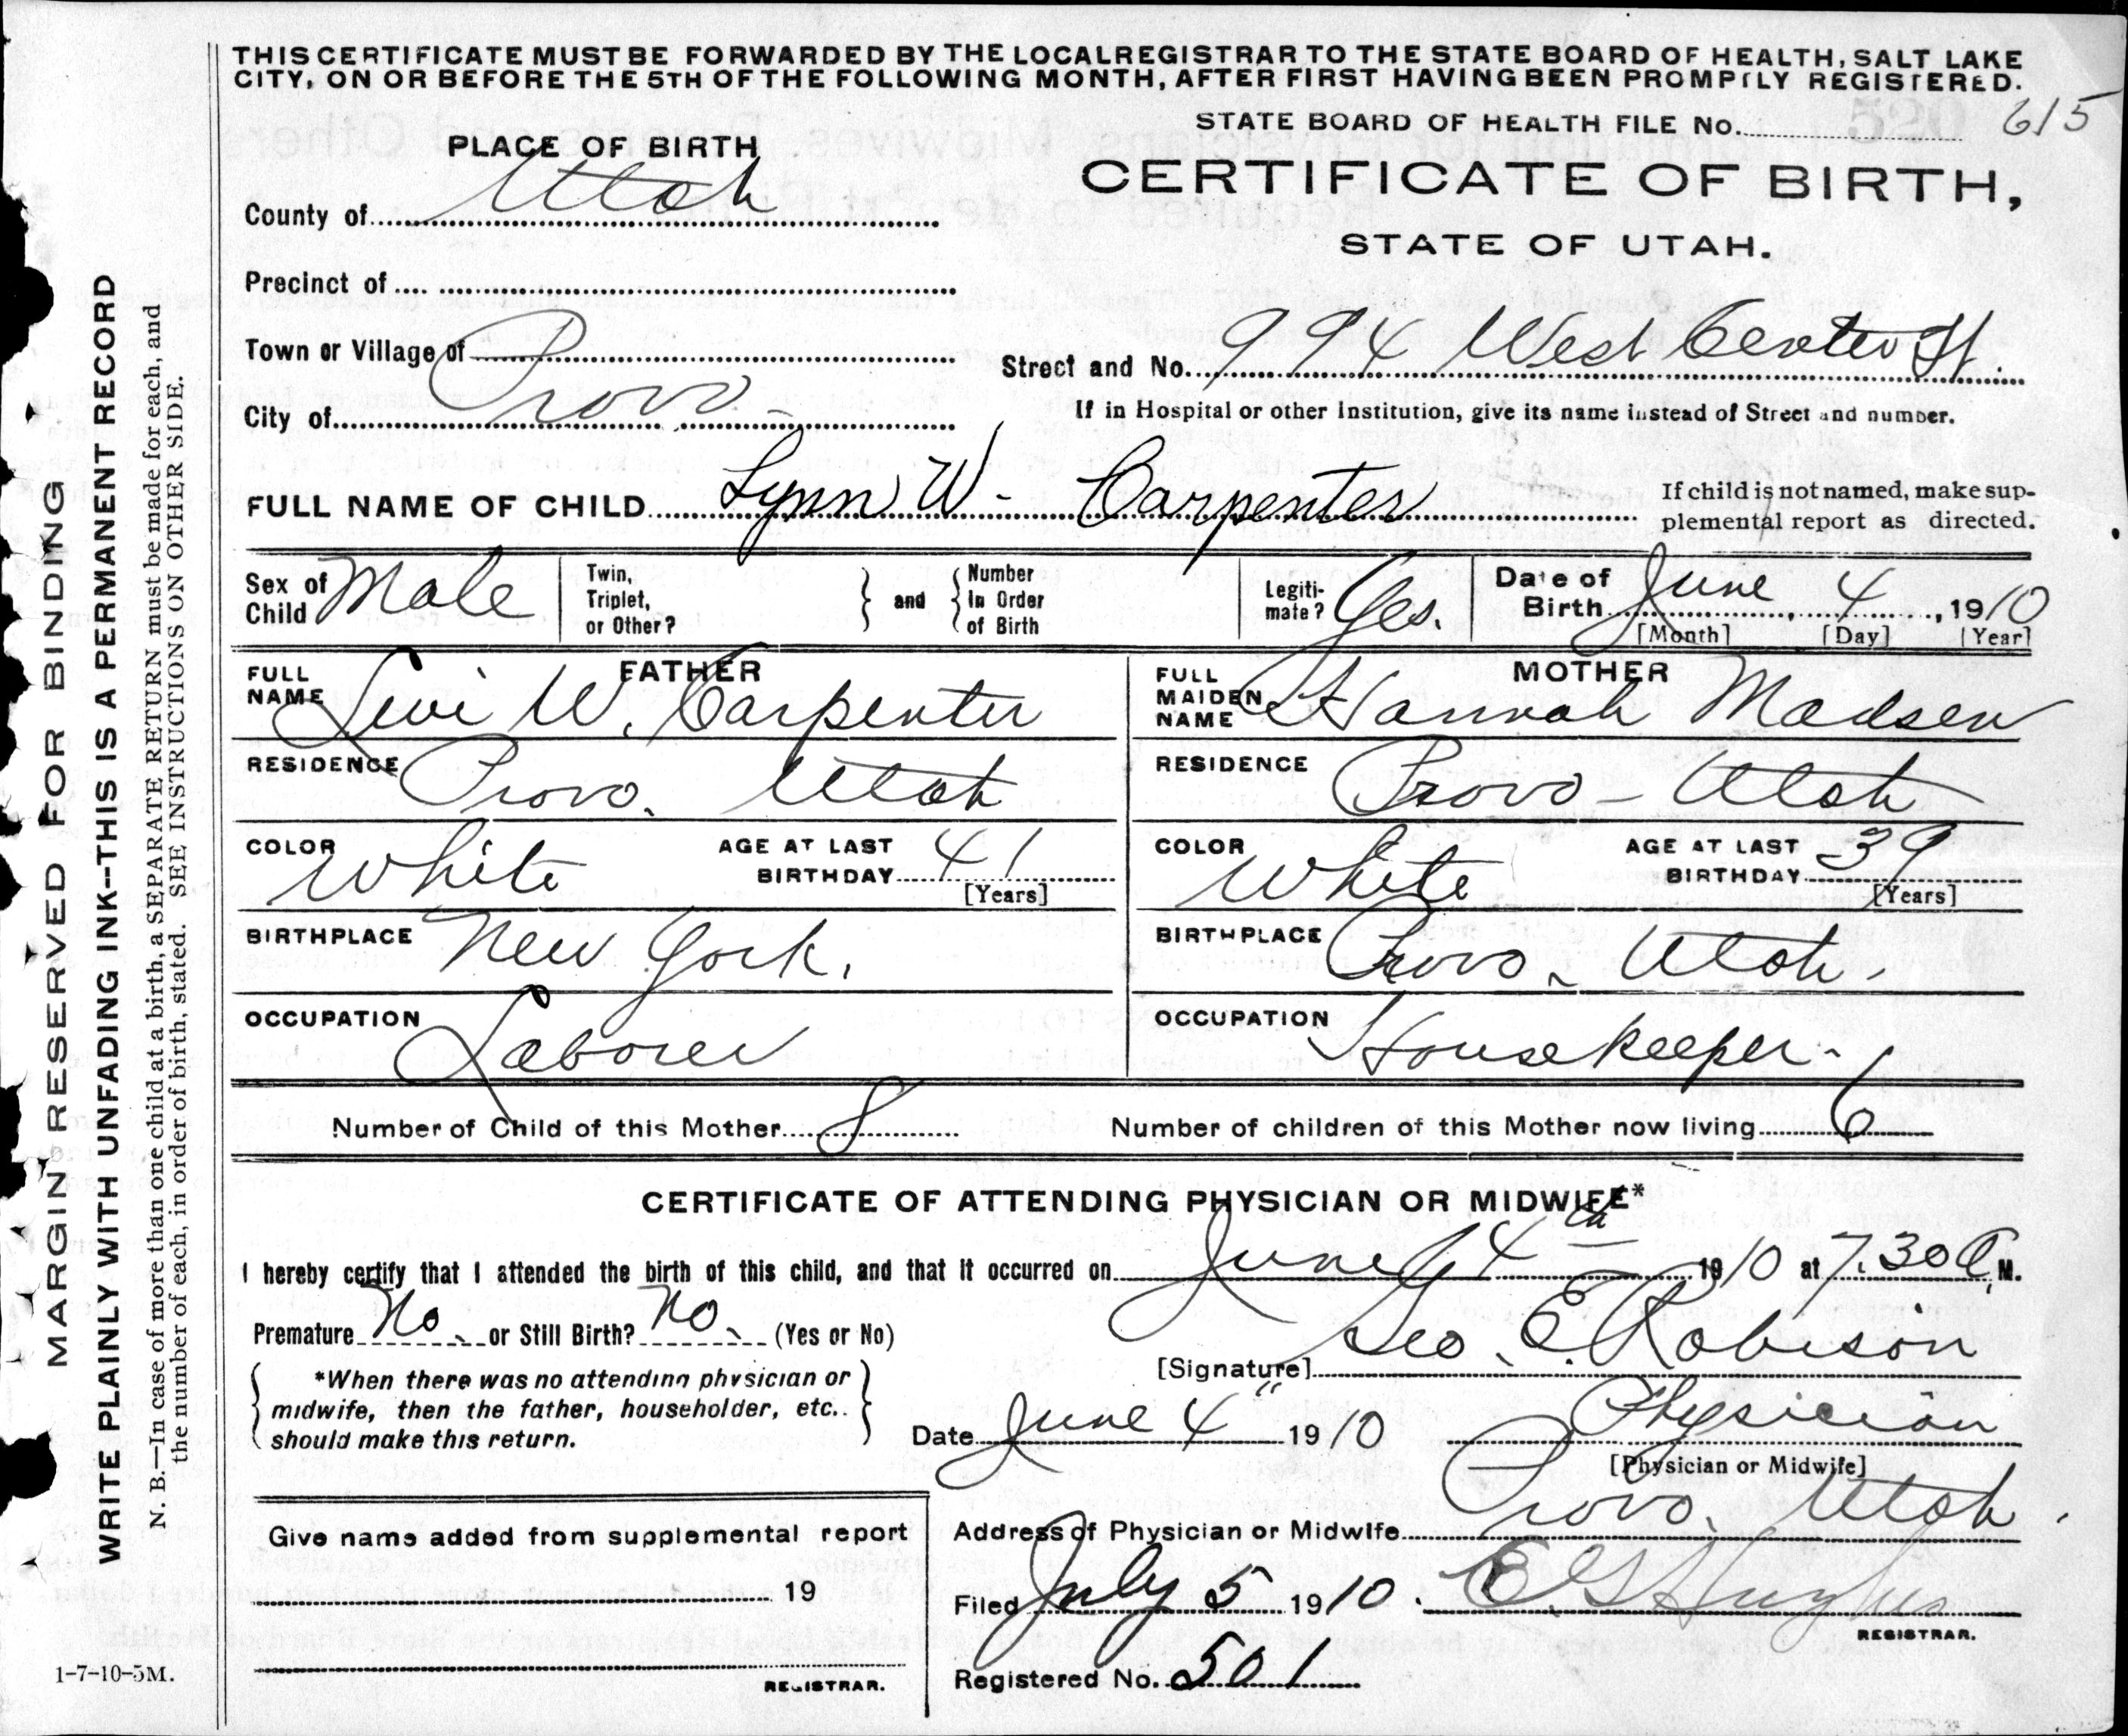 THIS CERTIFICATE MUST BE FORWARDED BY THE LOCAL REGISTRAR TO THE STATE BOARD OF HEALTH, SALT LAKE
CITY, ON OR BEFORE THE 5TH OF THE FOLLOWING MONTH, AFTER FIRST HAVING BEEN PROMPTLY REGISTERED.
STATE BOARD OF HEALTH FILE No. 615
PLACE OF BIRTH
CERTIFICATE OF BIRTH,
STATE OF UTAH.
County of Utah
Precinct of
Town or Village of
City of Provo
Street and No. 994 West Center St.
If in Hospital or other Institution, give its name instead of Street and number.
FULL NAME OF CHILD Lynn W - Carpenter
If child is not named, make sup-
plemental report as directed.
Sex of Child Male
Twin, Triplet, or Other?
and
Number In Order of Birth
Legiti-
mate? Yes.
Date of Birth June 4, 1910
[Month] [Day] [Year]
FATHER
FULL NAME Levi W. Carpenter
RESIDENCE Provo. Utah
COLOR White
AGE AT LAST BIRTHDAY 41
[Years]
BIRTHPLACE New York.
OCCUPATION Laborer
MOTHER
FULL MAIDEN NAME Hannah Madsen
RESIDENCE Provo - Utah
COLOR White
AGE AT LAST BIRTHDAY 39
[Years]
BIRTHPLACE Provo - Utah.
OCCUPATION Housekeeper -
Number of Child of this Mother 8
Number of children of this Mother now living 6
CERTIFICATE OF ATTENDING PHYSICIAN OR MIDWIFE*
I hereby certify that I attended the birth of this child, and that it occurred on June 4th 1910 at 7.30 A M.
Premature No. or Still Birth? No. (Yes or No)
*When there was no attending physician or
midwife, then the father, householder, etc..
should make this return.
[Signature] Geo. E. Robison
Date June 4" 1910
Physician
[Physician or Midwife]
Address of Physician or Midwife Provo. Utah.
Give name added from supplemental report
19
REGISTRAR.
Filed July 5 1910. E. G. Hughes
REGISTRAR.
Registered No. 501
1-7-10-5M.
MARGIN RESERVED FOR BINDING
WRITE PLAINLY WITH UNFADING INK--THIS IS A PERMANENT RECORD
N. B.—In case of more than one child at a birth, a SEPARATE RETURN must be made for each, and
the number of each, in order of birth, stated. SEE INSTRUCTIONS ON OTHER SIDE.